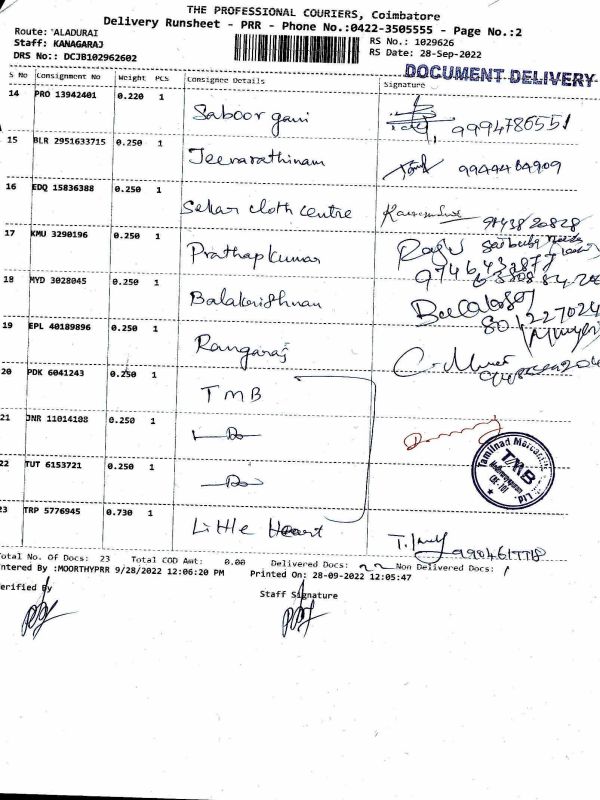 THE PROFESSIONAL COURIERS, Coimbatore
Delivery Runsheet - PRR - Phone No.:0422-3505555 - Page No.:2
Route: 'ALADURAI
Staff: KANAGARAJ
DRS No:: DCJB102962602
RS No.: 1029626
RS Date: 28-Sep-2022
DOCUMENT DELIVERY
S No Consignment No Weight PCS Consignee Details Signature
14 PRO 13942401 0.220 1 Saboor gani 9994786551
15 BLR 2951633715 0.250 1 Jeevarathinam 9944464909
16 EDQ 15836388 0.250 1 Sekar cloth centre
17 KMU 3290196 0.250 1 Prathap kumar Raju
18 MYD 3028045 0.250 1 Balakrishnan
19 EPL 40189896 0.250 1 Rangaraj
20 PDK 6041243 0.250 1 TMB
21 JNR 11014108 0.250 1 Do
22 TUT 6153721 0.250 1 Do
Tamilnad Mercantile
TMB
Ltd.
23 TRP 5776945 0.730 1 Little Heart
Total No. Of Docs: 23 Total COD Amt: 0.00 Delivered Docs: 22 Non Delivered Docs: 1
Entered By :MOORTHYPRR 9/28/2022 12:06:20 PM Printed On: 28-09-2022 12:05:47
Verified By Staff Signature